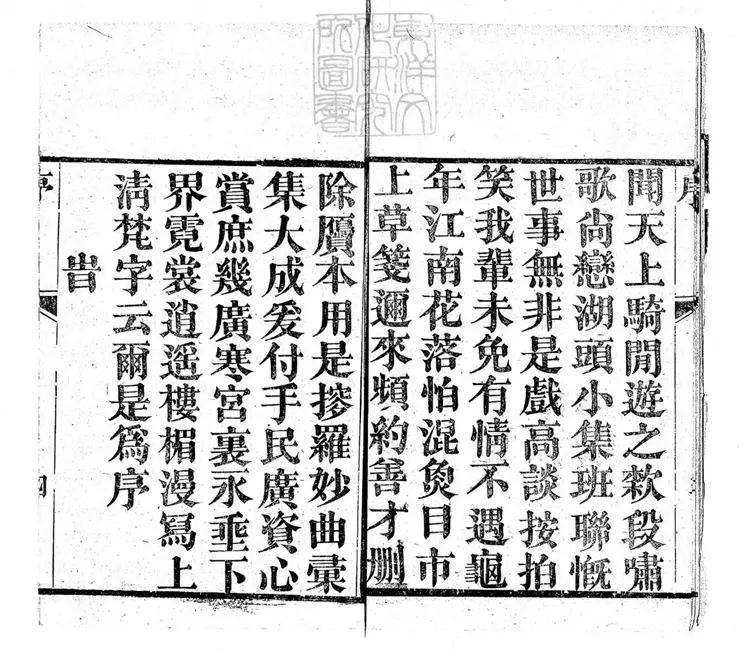 序
聞天上騎閒遊之欵段嘯
歌尙戀湖頭小集班聯慨
世事無非是戲高談按拍
笑我輩未免有情不遇龜
年江南花落怕混魚目市
上草箋邇來頻約善才刪
除贗本用是摉羅妙曲彙
集大成爰付手民廣資心
賞庶幾廣寒宮裏永垂下
界霓裳逍遥樓楣漫冩上
淸梵字云爾是爲序
旹
序
四
東洋文
化研究
所圖書